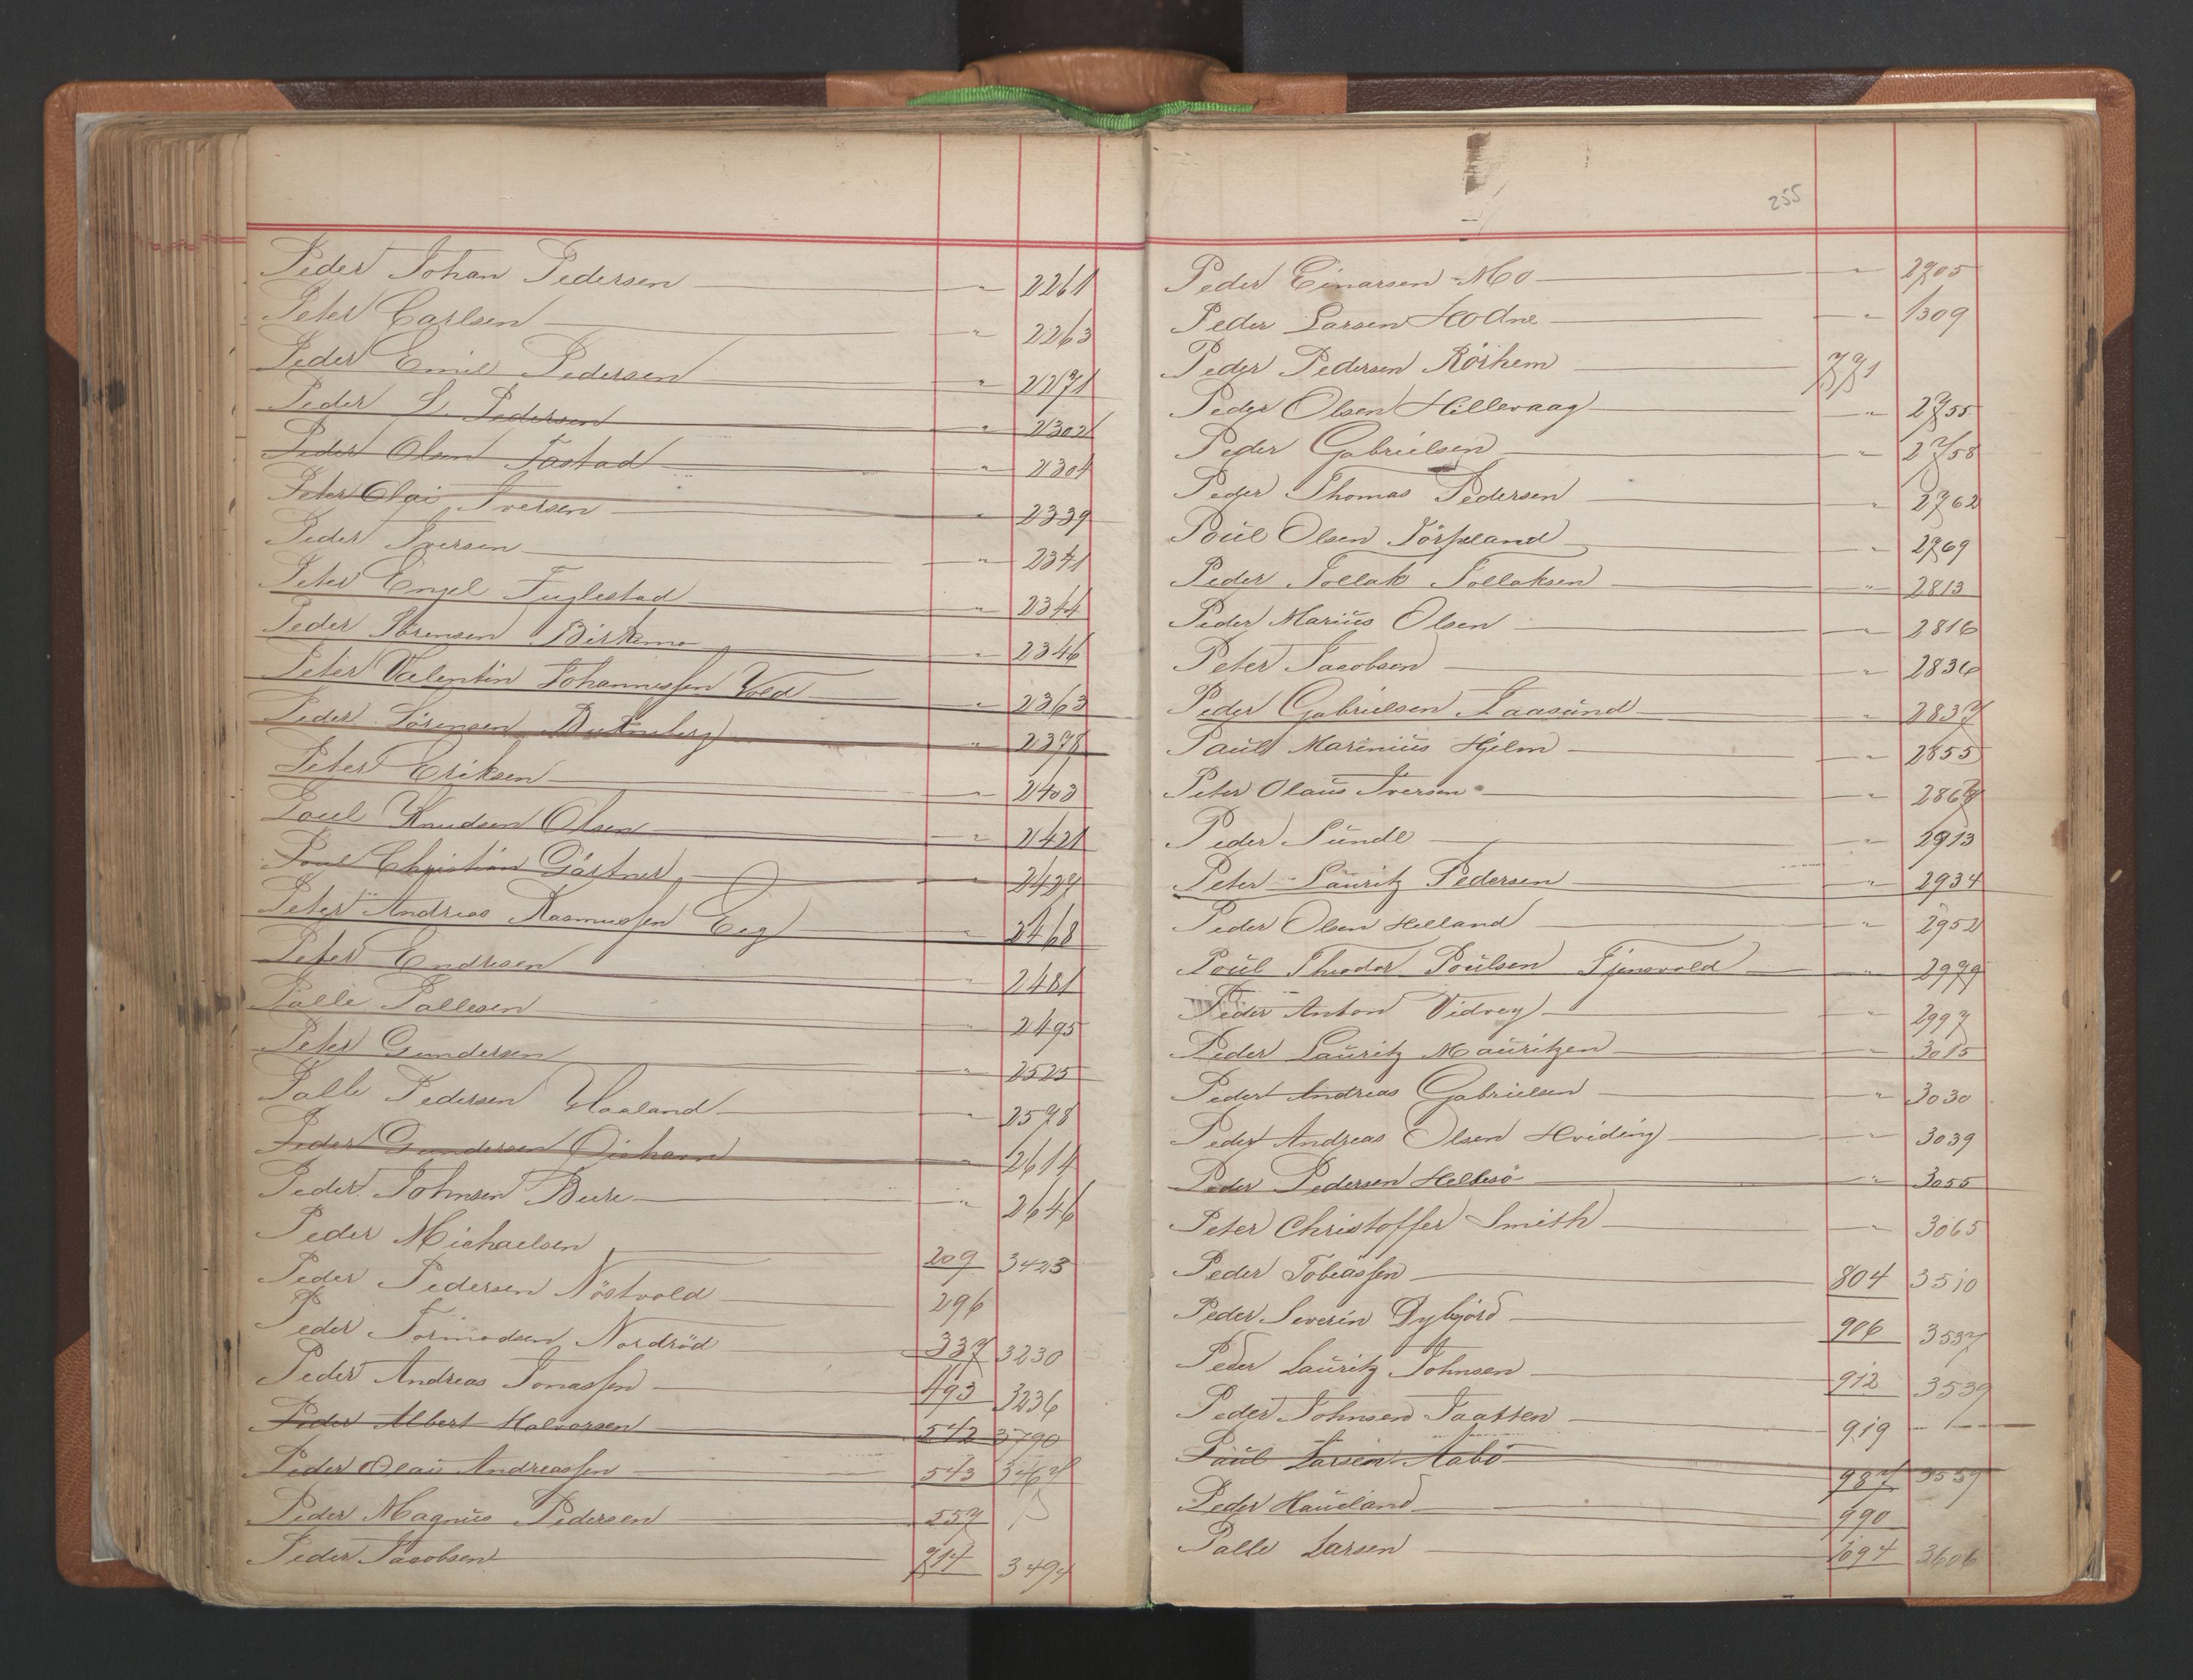 Peder Johan Pedersen " 2261
Peter Carlsen " 2263
Peder Emil Pedersen " 2271
Peder L. Pedersen " 2302
Peder Olsen Tastad " 2304
Peter Olai Iversen " 2339
Peder Iversen " 2341
Peter Engel Fuglestad " 2344
Peder Sörensen Birkemo " 2346
Peter Valentin Johannessen Vold " 2363
Peder Sörensen " 2378
Peter Eriksen " 2403
Poul Knudsen Olsen " 2421
Poul Christian Gärtner " 2427
Peter Andreas Rasmussen Eeg " 2468
Peter Endresen " 2481
Palle Pallesen " 2495
Peter Gundersen " 2525
Palle Pedersen Haaland " 2578
Peder Gundersen " 2614
Peder Johnsen Bure " 2646
Peder Michaelsen 209 3423
Peder Pedersen Nöstvold 296
Peder Tormodsen Nordröd 337 3230
Peder Andreas Jonassen 493 3236
Peder Albert Halvorsen 542 3790
Peder Olai Andreassen 543 3467
Peder Magnus Pedersen 557
Peder Jacobsen 714 3494
255
Peder Einarsen Mo " 2705
Peder Larsen Hodne " 1309
Peder Pedersen Rörhem 771
Peder Olsen Hillevaag " 2755
Peder Gabrielsen " 2758
Peder Thomas Pedersen " 2762
Poul Olsen Jörpeland " 2769
Peder Tollak Tollaksen " 2813
Peder Marius Olsen " 2816
Peter Jacobsen " 2836
Peder Gabrielsen Laasund " 2837
Paul Marinius Hjelm " 2855
Peter Olaus Iversen " 2867
Peder Sunde " 2913
Peter Lauritz Pedersen " 2934
Peder Olsen Helland " 2952
Poul Theodor Poulsen Tjensvold " 2979
Peder Anton Vidvey " 2997
Peder Lauritz Mauritzen " 3015
Peder Andreas Gabrielsen " 3030
Peder Andreas Olsen Hviding " 3039
Peder Pedersen Helliesö " 3055
Peter Christoffer Smith " 3065
Peder Tobiassen 804 3510
Peder Severin Dybjord 906 3537
Peder Lauritz Johnsen 912 3539
Peder Johnsen Taatten 919
Paul Larsen Aabö 987 3559
Peder Haueland 990
Palle Larsen 1094 3606